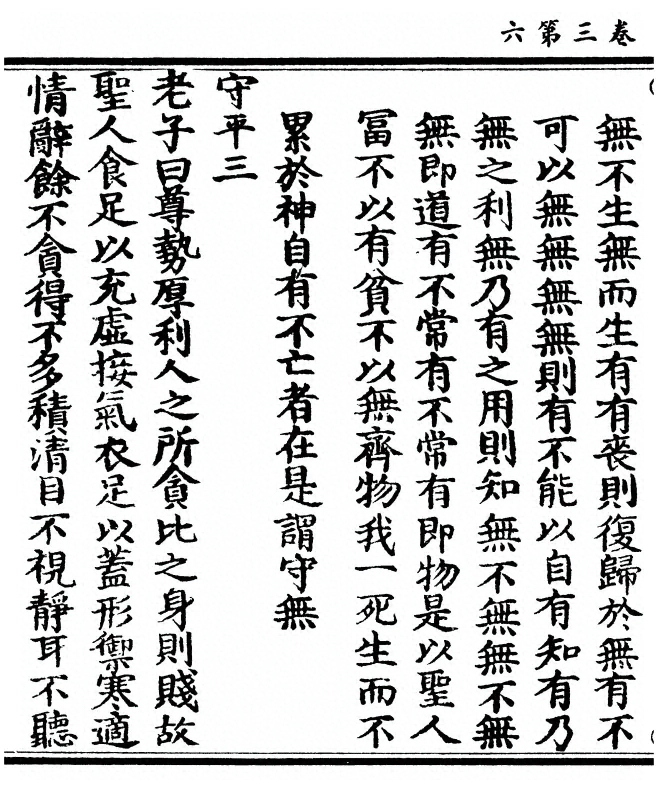 卷三第六
無不生無而生有有喪則復歸於無有不
可以無無無無則有不能以自有知有乃
無之利無乃有之用則知無不無無不無
無即道有不常有不常有即物是以聖人
冨不以有貧不以無齊物我一死生而不
累於神自有不亡者在是謂守無
守平三
老子曰尊勢厚利人之所貪比之身則賤故
聖人食足以充虛接氣衣足以蓋形禦寒適
情辭餘不貪得不多積清目不視靜耳不聽